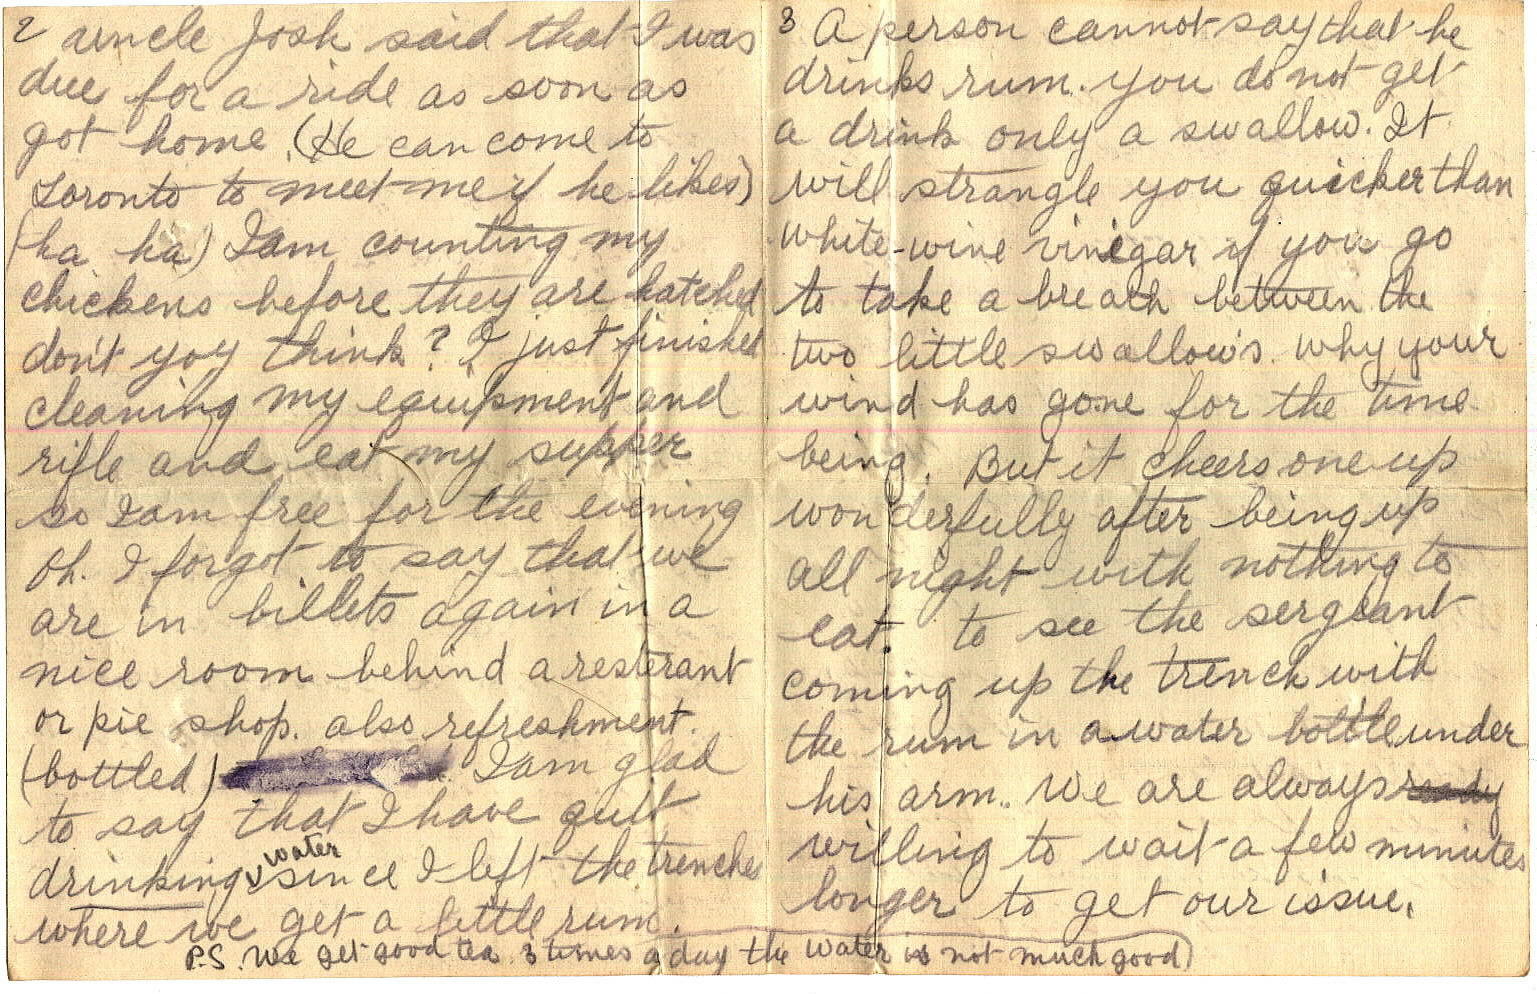 2 uncle Josh said that I was
due for a ride as soon as
got home. (He can come to
Toronto to meet me if he likes)
(ha ha) I am counting my
chickens before they are hatched
don't yoy think? I just finished
cleaning my equipment and
rifle and eat my supper
so I am free for the evening
Oh. I forgot to say that we
are in billets again in a
nice room behind a resterant
or pie shop. also refreshment.
(bottled) I am glad
to say that I have quit
drinking water since I left the trenches
where we get a little rum.
P.S. We get good tea 3 times a day the water is not much good)
3 A person cannot say that he
drinks rum. you do not get
a drink only a swallow. It
will strangle you quicker than
white-wine vinegar if you go
to take a breath between the
two little swallows. why your
wind has gone for the time
being. But it cheers one up
wonderfully after being up
all night with nothing to
eat. to see the sergeant
coming up the trench with
the rum in a water bottle under
his arm. We are always ready
willing to wait a few minutes
longer to get our issue.